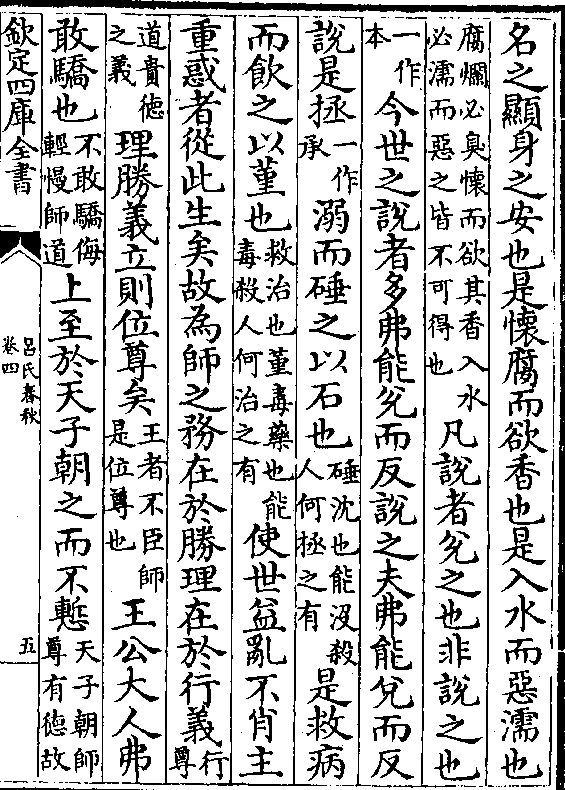 名之顯身之安也是懷腐而欲香也是入水而惡濡也
腐爛必臭懷而欲其香入水
必濡而惡之皆不可得也
凡說者兊之也非說之也
一作
本
今世之說者多弗能兊而反說之夫弗能兊而反
說是拯
一作
承
溺而硾之以石也
硾沈也能沒殺
人何拯之有
是救病
而飲之以堇也
救治也堇毒藥也能
毒殺人何治之有
使世益亂不肖主
重惑者從此生矣故為師之務在於勝理在於行義
行
尊
道貴徳
之義
理勝義立則位尊矣
王者不臣師
是位尊也
王公大人弗
敢驕也
不敢驕侮
輕慢師道
上至於天子朝之而不慙
天子朝師
尊有德故
欽定四庫全書
呂氏春秋
卷四
五